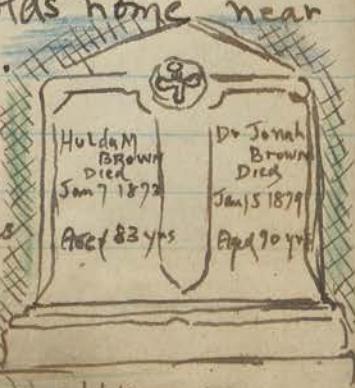 home near
Hulda M
BROWN
Died
Jan 7 1873
Aged 83 yrs
Dr Jonah
Brown
Died
Jan 15 1879
Aged 90 yrs